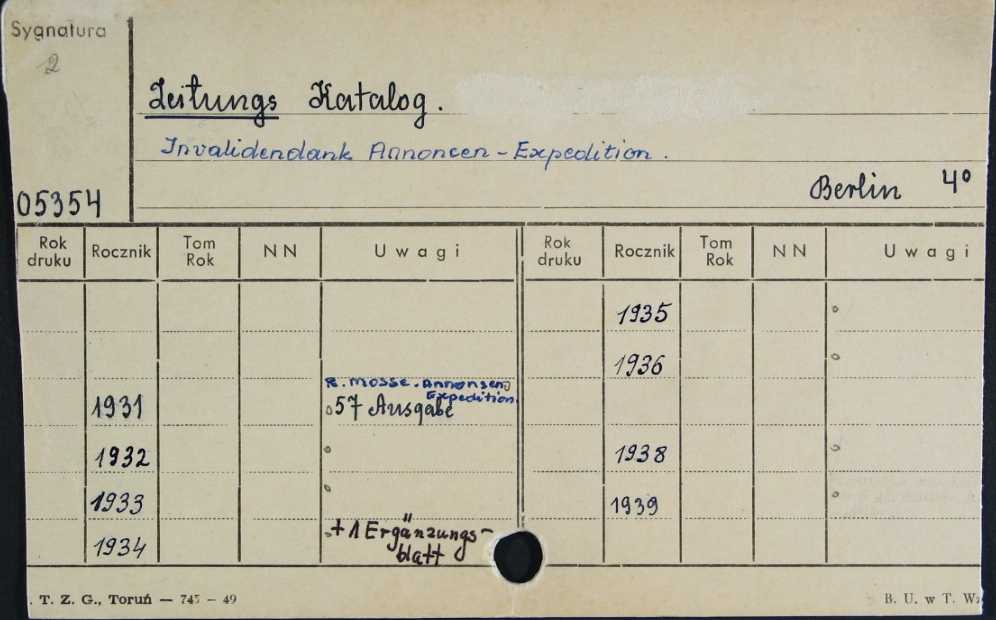 Sygnatura
2
Zeitungs Katalog.
Invalidendank Annoncen-Expedition.
Berlin 4°
05354
Rok druku Rocznik Tom Rok NN Uwagi Rok druku Rocznik Tom Rok NN Uwagi
1935
1936
R. Mosse. Annonsen Expedition.
1931 57 Ausgabe
1932 1938
1933 1939
1934 + 1 Ergänzungs-
blatt
. T. Z. G., Toruń — 745 — 49 B. U. w T. W